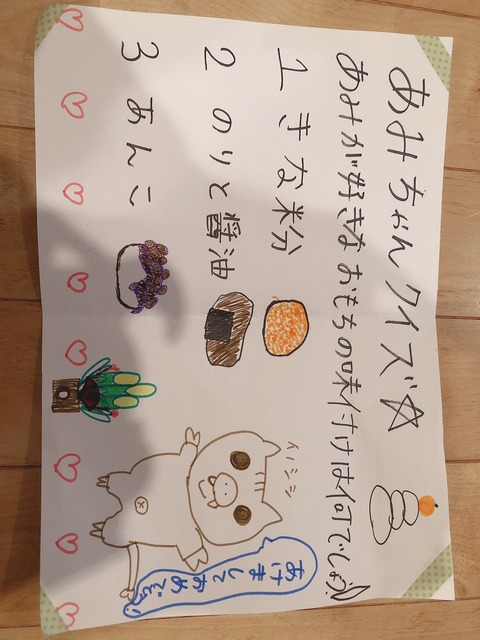 あみちゃんクイズ☆
あみが好きなおもちの味付けは何でしょう?
1 きな粉
2 のりと醤油
3 あんこ
イノシシ
あけまして
おめでとう